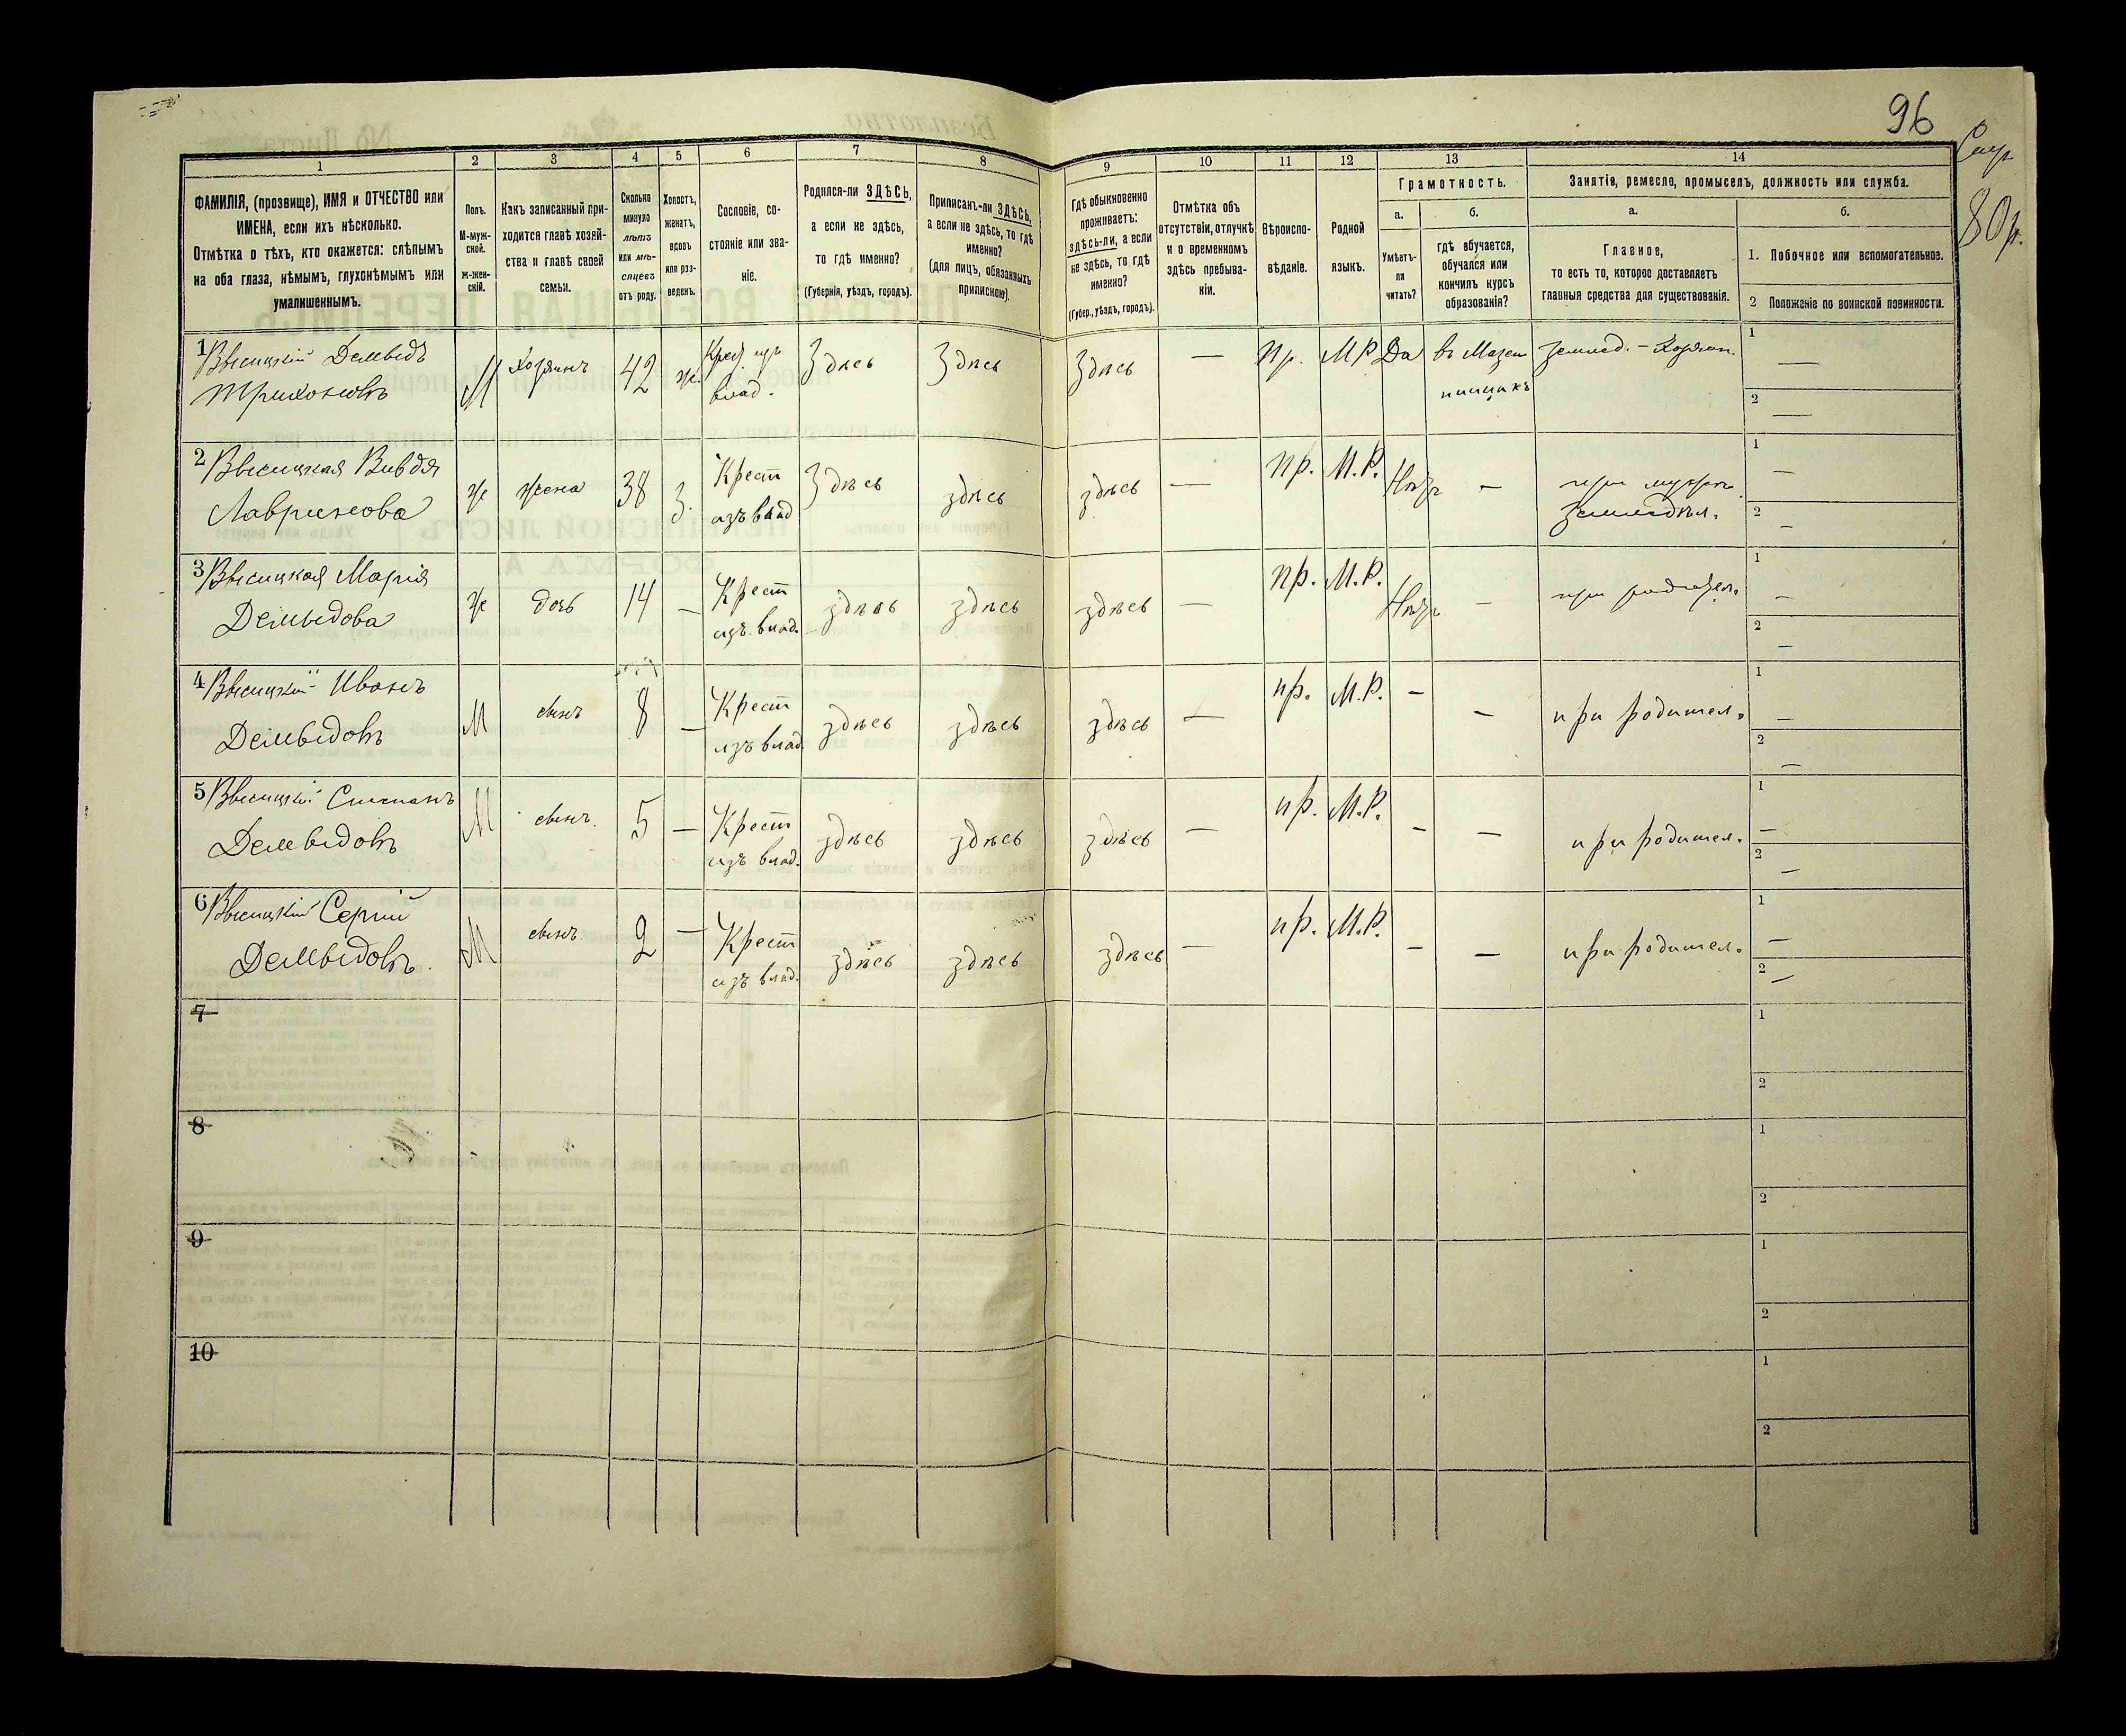 96
80 р.
1 2 3 4 5 6 7 8 9 10 11 12 13 14
ФАМИЛІЯ, (прозвище), ИМЯ и ОТЧЕСТВО или
ИМЕНА, если ихъ нѣсколько.
Отмѣтка о тѣхъ, кто окажется: слѣпымъ
на оба глаза, нѣмымъ, глухонѣмымъ или
умалишеннымъ.
Полъ.
М-муж-
ской.
ж-жен-
скій.
Какъ записанный при-
ходится главѣ хозяй-
ства и главѣ своей
семьи.
Сколько
минуло
лѣтъ
или мѣ-
сяцевъ
отъ роду.
Холостъ,
женатъ,
вдовъ
или раз-
веденъ.
Сословіе, со-
стояніе или зва-
ніе.
Родился-ли ЗДѢСЬ,
а если не здѣсь,
то гдѣ именно?
(Губернія, уѣздъ, городъ).
Приписанъ-ли ЗДѢСЬ,
а если не здѣсь, то гдѣ
именно?
(для лицъ, обязанныхъ
припискою).
Гдѣ обыкновенно
проживаетъ:
здѣсь-ли, а если
не здѣсь, то гдѣ
именно?
(Губер., уѣздъ, городъ).
Отмѣтка объ
отсутствіи, отлучкѣ
и о временномъ
здѣсь пребыва-
ніи.
Вѣроиспо-
вѣданіе.
Родной
языкъ.
Грамотность.
а.
Умѣетъ-
ли
читать?
б.
гдѣ обучается,
обучался или
кончилъ курсъ
образованія?
Занятія, ремесло, промыселъ, должность или служба.
а.
Главное,
то есть то, которое доставляетъ
главныя средства для существованія.
б.
1. Побочное или вспомогательное.
2 Положеніе по воинской повинности.
1 Демыдъ
М Хозяинъ 42 ж. Крест. изъ влад. Здѣсь Здѣсь Здѣсь — Пр. М Р Да въ землед. - Хозяин. 1 —
2 —
2 Вивдя
ж жена 38 З. Крест изъ влад Здѣсь здѣсь здѣсь — пр. М.Р. — при 1 —
землѣдѣл. 2 —
3 Марія
Демыдова ж дочь 14 — Крест изъ влад. здѣсь здѣсь здѣсь — пр. М.Р. — при родител. 1 —
2 —
4 Иванъ
Демыдовъ М сынъ 8 — Крест изъ влад. здѣсь здѣсь здѣсь — пр. М.Р. — — при родител. 1 —
2 —
5 Степанъ
Демыдовъ М сынъ. 5 — Крест изъ влад. здѣсь здѣсь здѣсь — пр. М.Р. — — при родител. 1 —
2 —
6 Сергій
Демыдовъ. М сынъ. 2 — Крест изъ влад. здѣсь здѣсь здѣсь — пр. М.Р. — — при родител. 1 —
2 —
7 1
2
8 1
2
9 1
2
10 1
2